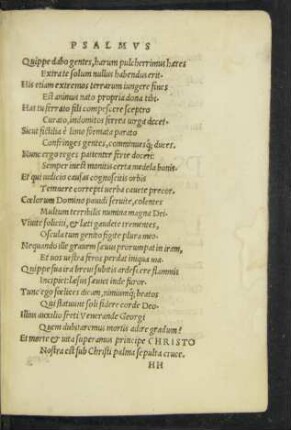 PSALMVS
Quippe dabo gentes, harum pulcherrimus hæres
Extra te solum nullus habendus erit.
His etiam extremos terrarum iungere fines
Est animus nato propria dona tibi.
Has tu ferrato fili compescere sceptro
Curato, indomitos ferrea urga decet.
Sicut fictilia è limo formata parato
Confringes gentes, comminuesq; duces.
Nunc ergo reges patienter ferte doceri:
Semper inest monitis certa medela bonis.
Et qui iudicio causas cognoscitis orbis
Temnere correpti uerba cauete precor.
Cœlorum Domino pauidi seruite, colentes
Multum terribilis numina magna Dei.
Viuite soliciti, & læti gaudete trementes,
Oscula tum genito figite plura meo.
Nequando ille grauem sæuus prorumpat in iram,
Et nos uestra feros perdat iniqua
Quippe sua ira breui subitis ardescere flammis
Incipiet: læsus sæuet inde furor.
Tunc ergo fœlices dicam, nimiumq; beatos
Qui statuunt soli fidere corde Deo.
Illius auxilio freti Venerande Georgi
Quem dubitaremus mortis adire gradum?
Et morte & uita superamus principe CHRISTO
Nostra est sub Christi palma sepulta cruce.
HH